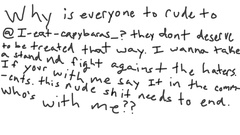 Why is everyone to rude to
@I-eat-capybaras_? they dont deserve
to be treated that way. I wanna take
a stand nd fight against the haters.
If your with me say It in the comm
-ents. this rude shit needs to end.
who's with me??